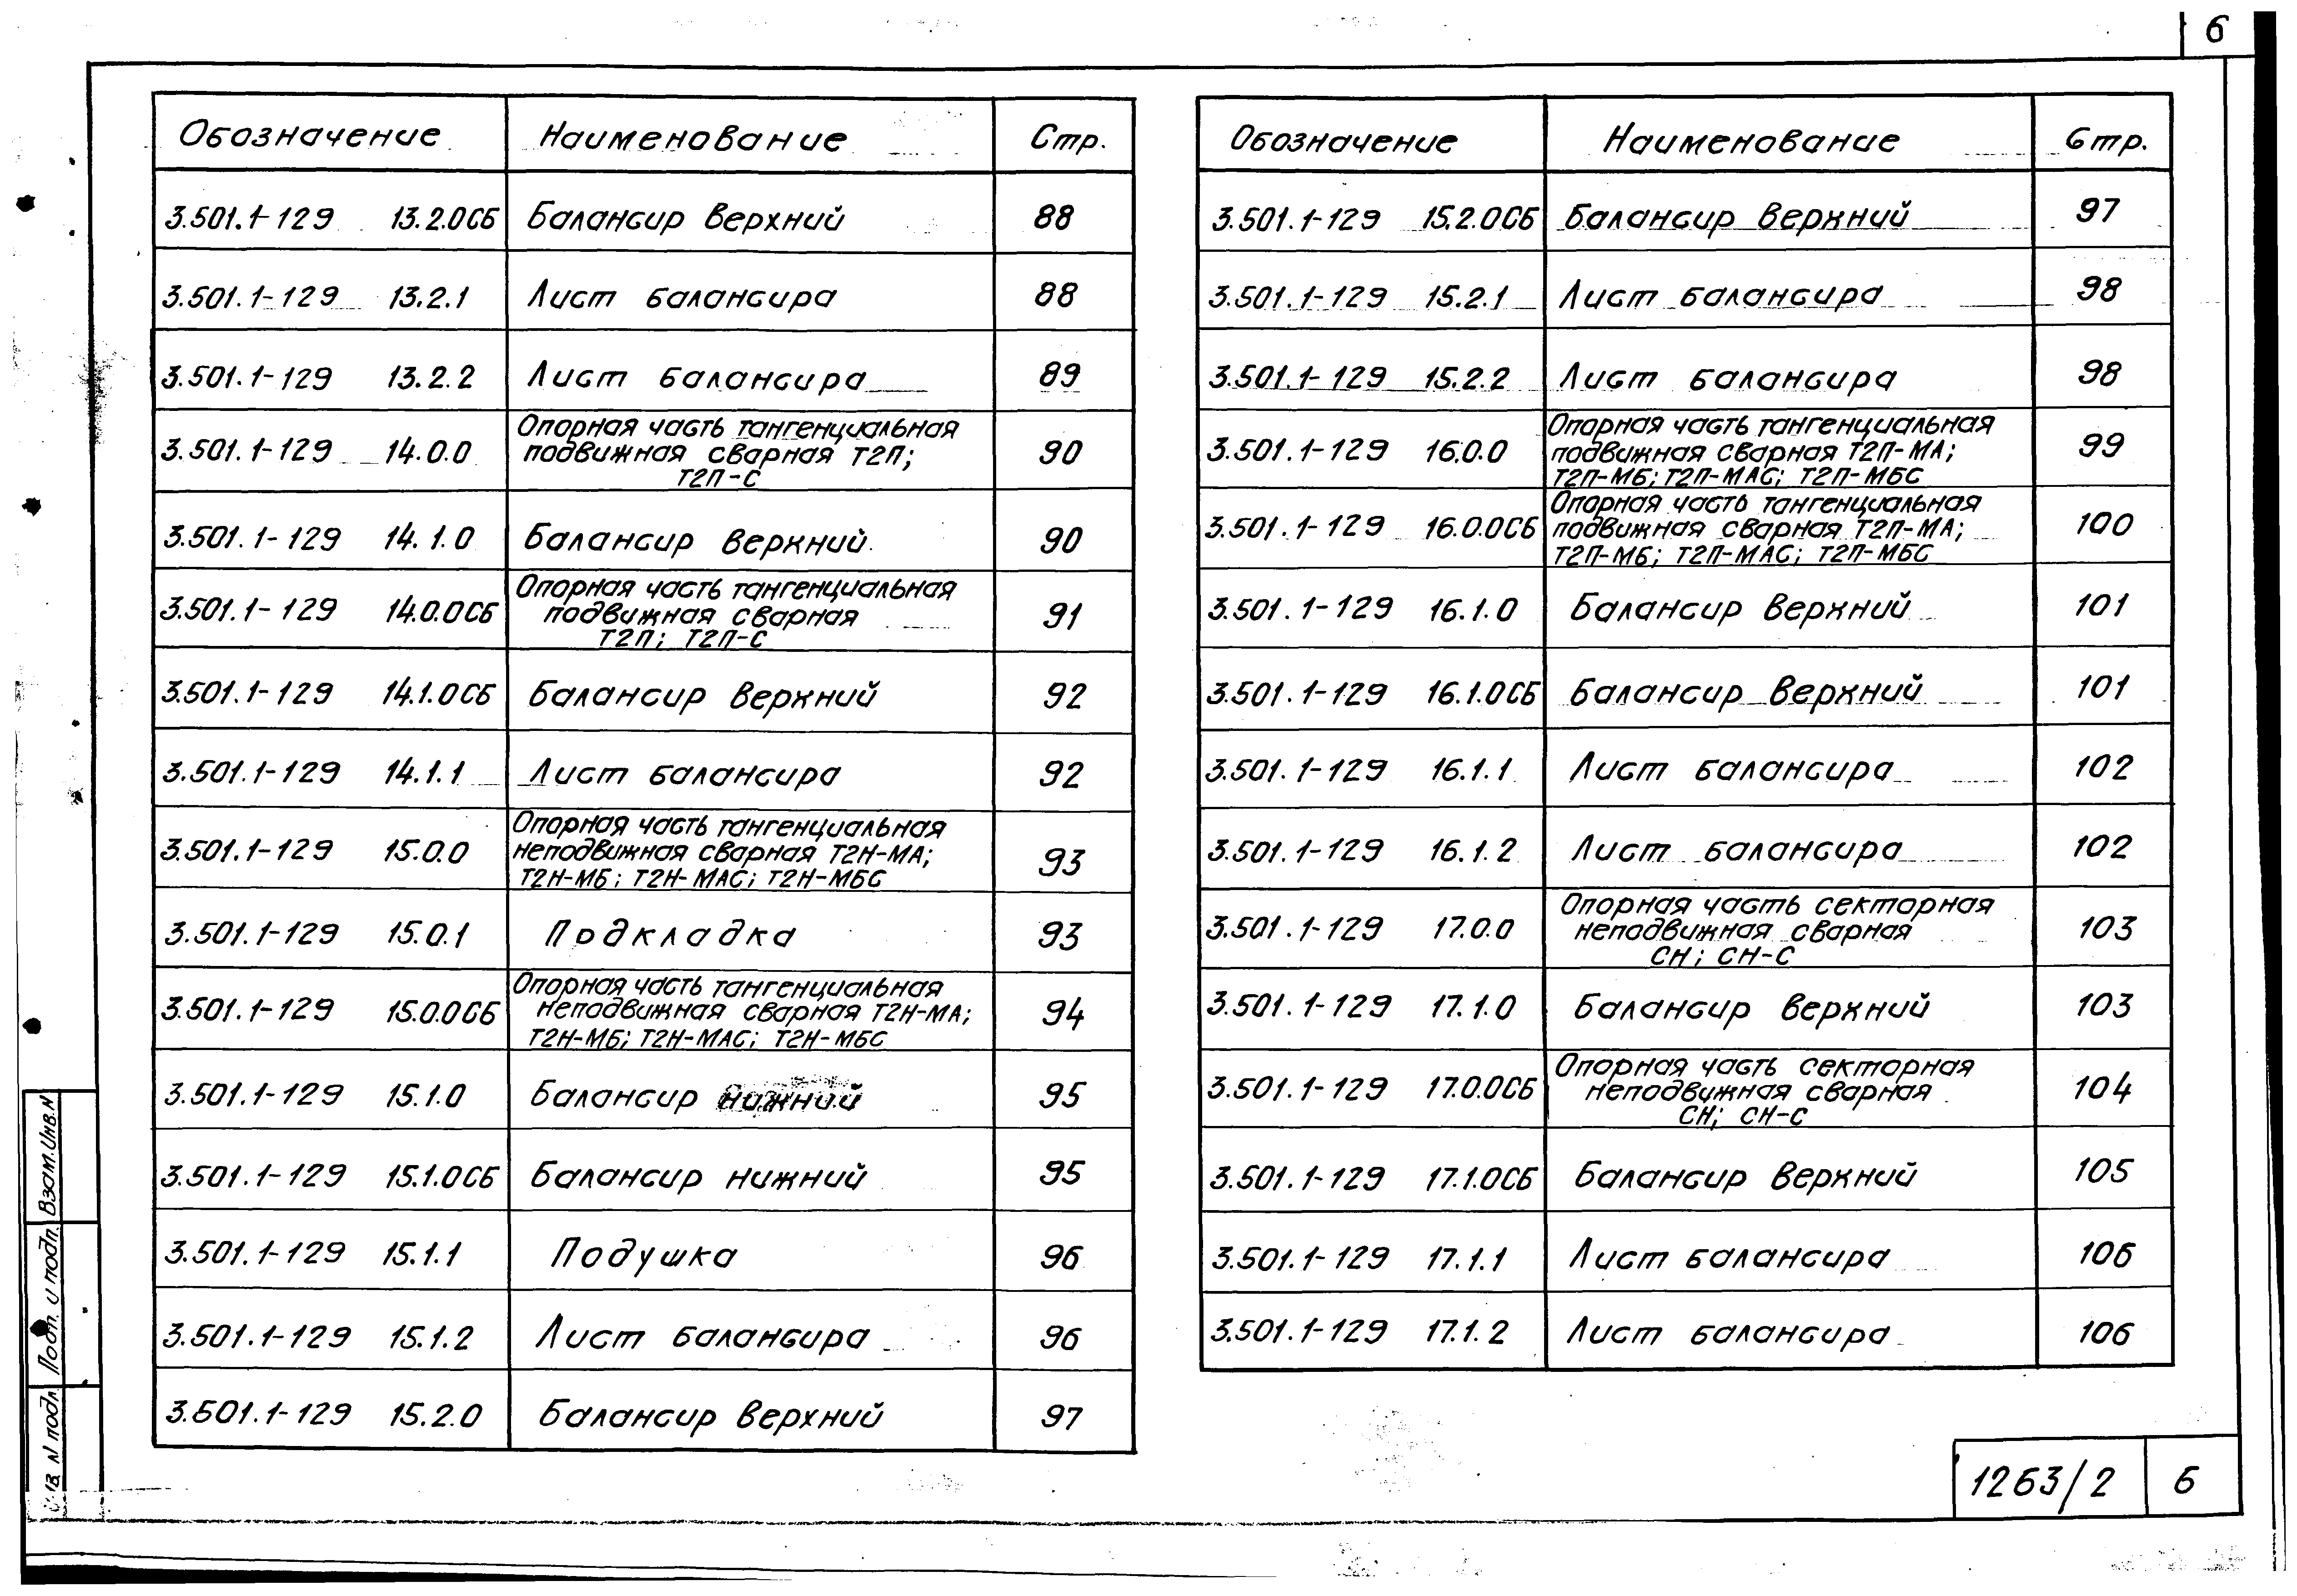 6
Обозначение Наименование Стр.
3.501.1-129 13.2.0СБ Балансир верхний 88
3.501.1-129 13.2.1 Лист балансира 88
3.501.1-129 13.2.2 Лист балансира 89
3.501.1-129 14.0.0 Опорная часть тангенциальная
подвижная сварная Т2П;
Т2П-С 90
3.501.1-129 14.1.0 Балансир верхний 90
3.501.1-129 14.0.0СБ Опорная часть тангенциальная
подвижная сварная
Т2П; Т2П-С 91
3.501.1-129 14.1.0СБ Балансир верхний 92
3.501.1-129 14.1.1 Лист балансира 92
3.501.1-129 15.0.0 Опорная часть тангенциальная
неподвижная сварная Т2Н-МА;
Т2Н-МБ; Т2Н-МАС; Т2Н-МБС 93
3.501.1-129 15.0.1 Подкладка 93
3.501.1-129 15.0.0СБ Опорная часть тангенциальная
неподвижная сварная Т2Н-МА;
Т2Н-МБ; Т2Н-МАС; Т2Н-МБС 94
3.501.1-129 15.1.0 Балансир нижний 95
3.501.1-129 15.1.0СБ Балансир нижний 95
3.501.1-129 15.1.1 Подушка 96
3.501.1-129 15.1.2 Лист балансира 96
3.501.1-129 15.2.0 Балансир верхний 97
Обозначение Наименование Стр.
3.501.1-129 15.2.0СБ Балансир верхний 97
3.501.1-129 15.2.1 Лист балансира 98
3.501.1-129 15.2.2 Лист балансира 98
3.501.1-129 16.0.0 Опорная часть тангенциальная
подвижная сварная Т2П-МА;
Т2П-МБ; Т2П-МАС; Т2П-МБС 99
3.501.1-129 16.0.0СБ Опорная часть тангенциальная
подвижная сварная Т2П-МА;
Т2П-МБ; Т2П-МАС; Т2П-МБС 100
3.501.1-129 16.1.0 Балансир верхний 101
3.501.1-129 16.1.0СБ Балансир верхний 101
3.501.1-129 16.1.1 Лист балансира 102
3.501.1-129 16.1.2 Лист балансира 102
3.501.1-129 17.0.0 Опорная часть секторная
неподвижная сварная
СН; СН-С 103
3.501.1-129 17.1.0 Балансир верхний 103
3.501.1-129 17.0.0СБ Опорная часть секторная
неподвижная сварная
СН; СН-С 104
3.501.1-129 17.1.0СБ Балансир верхний 105
3.501.1-129 17.1.1 Лист балансира 106
3.501.1-129 17.1.2 Лист балансира 106
Взам.Инв.N
Подп. и подп.
N подл
1263/2 6